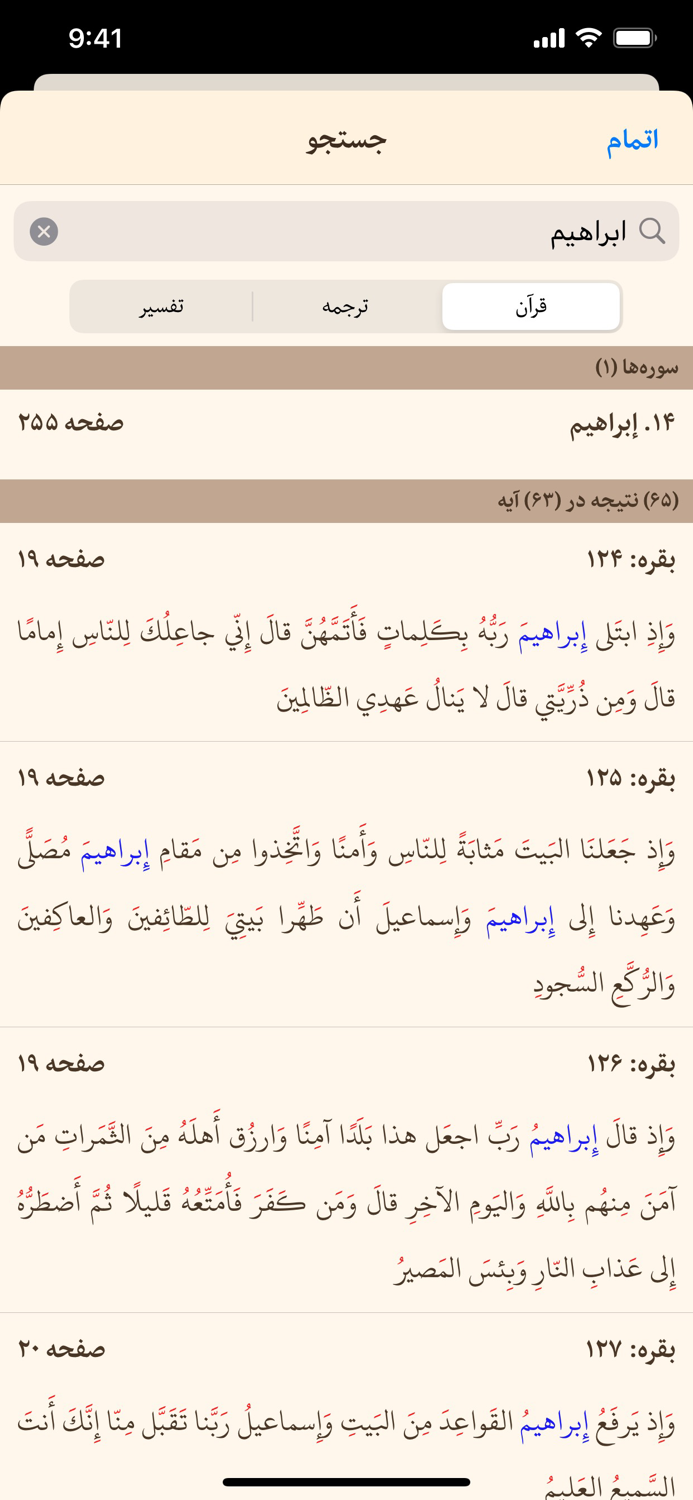 9:41
اتمام
جستجو
ابراهیم
قرآن
ترجمه
تفسیر
سوره‌ها (۱)
۱۴. إبراهيم
صفحه ۲۵۵
(۶۵) نتیجه در (۶۳) آیه
بقره: ۱۲۴
صفحه ۱۹
وَإِذِ ابتَلى إِبراهيمَ رَبُّهُ بِكَلِماتٍ فَأَتَمَّهُنَّ قالَ إِنّي جاعِلُكَ لِلنّاسِ إِمامًا
قالَ وَمِن ذُرِّيَّتي قالَ لا يَنالُ عَهدِي الظّالِمينَ
بقره: ۱۲۵
صفحه ۱۹
وَإِذ جَعَلنَا البَيتَ مَثابَةً لِلنّاسِ وَأَمنًا وَاتَّخِذوا مِن مَقامِ إِبراهيمَ مُصَلًّى
وَعَهِدنا إِلى إِبراهيمَ وَإِسماعيلَ أَن طَهِّرا بَيتِيَ لِلطّائِفينَ وَالعاكِفينَ
وَالرُّكَّعِ السُّجودِ
بقره: ۱۲۶
صفحه ۱۹
وَإِذ قالَ إِبراهيمُ رَبِّ اجعَل هذا بَلَدًا آمِنًا وَارزُق أَهلَهُ مِنَ الثَّمَراتِ مَن
آمَنَ مِنهُم بِاللَّهِ وَاليَومِ الآخِرِ قالَ وَمَن كَفَرَ فَأُمَتِّعُهُ قَليلًا ثُمَّ أَضطَرُّهُ
إِلى عَذابِ النّارِ وَبِئسَ المَصيرُ
بقره: ۱۲۷
صفحه ۲۰
وَإِذ يَرفَعُ إِبراهيمُ القَواعِدَ مِنَ البَيتِ وَإِسماعيلُ رَبَّنا تَقَبَّل مِنّا إِنَّكَ أَنتَ
السَّميعُ العَليمُ